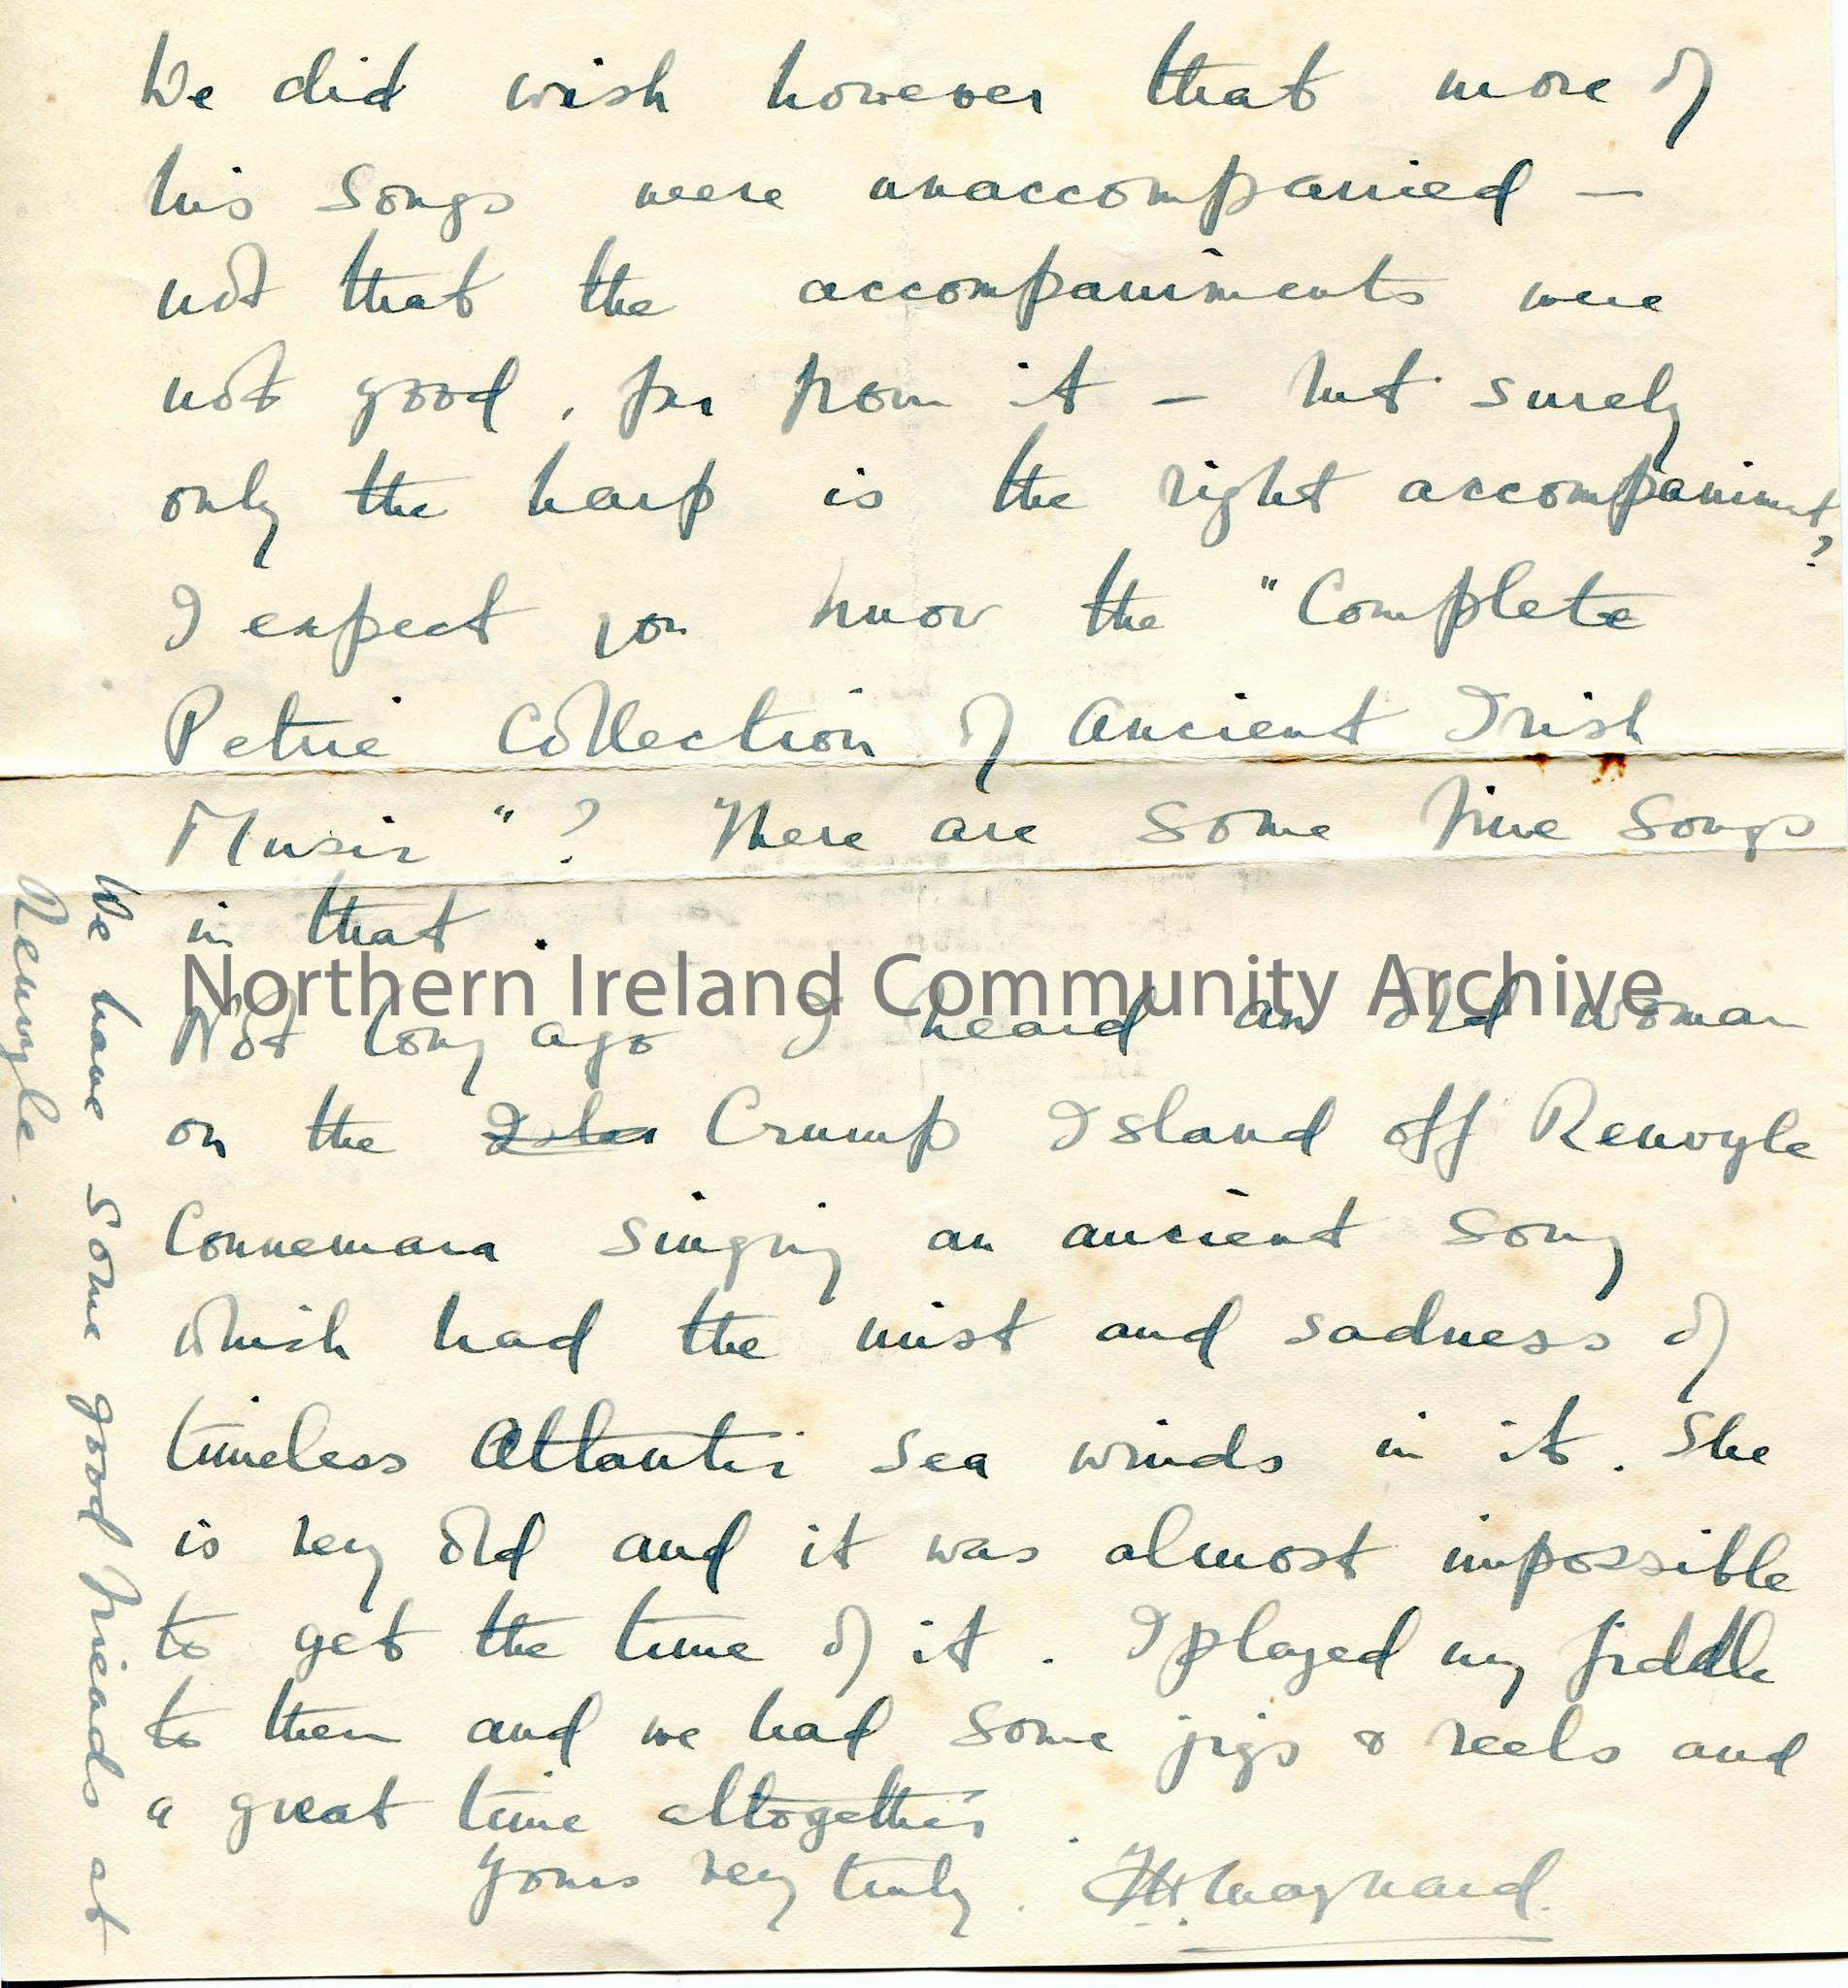 We did wish however that more of
his songs were unaccompanied –
not that the accompaniments were
not good, far from it – but surely
only the harp is the right accompaniment?
I expect you know the "Complete
Petrie Collection of Ancient Irish
Music"? There are some fine songs
in that.
Northern Ireland Community Archive
Not long ago I heard an old woman
on the Crump Island off Renvyle
Connemara singing an ancient song
which had the mist and sadness of
timeless Atlantic sea winds in it. She
is very old and it was almost impossible
to get the tune of it. I played my fiddle
to them and we had some jigs & reels and
a great time altogether.
Yours very truly. Maynard.
We have some good friends at
Renvyle.